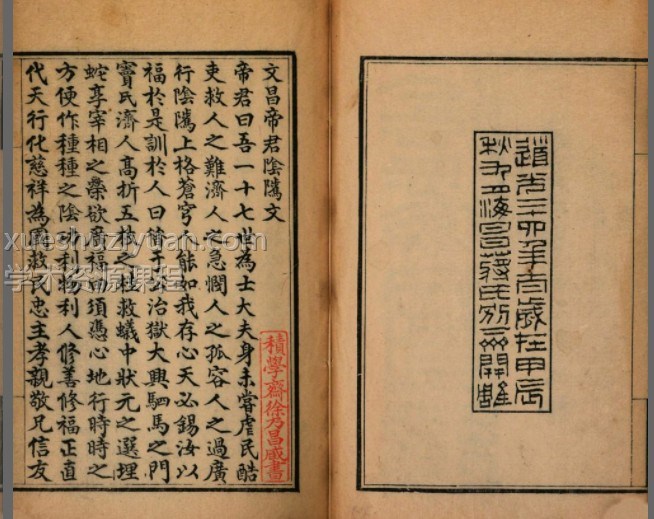 道光二十四年太歲在甲辰
秋九月海昌蔣氏別下齋開雕
文昌帝君陰隲文
帝君曰吾一十七世為士大夫身未嘗虐民酷
吏救人之難濟人之急憫人之孤容人之過廣
行陰隲上格蒼穹人能如我存心天必錫汝以
福於是訓於人曰昔于公治獄大興駟馬之門
竇氏濟人高折五枝之桂救蟻中狀元之選埋
蛇享宰相之榮欲廣福田須憑心地行時時之
方便作種種之陰功利物利人修善修福正直
代天行化慈祥為國救民忠主孝親敬兄信友
積學齋徐乃昌藏書
xueshuziyuan.com
学术资源课程